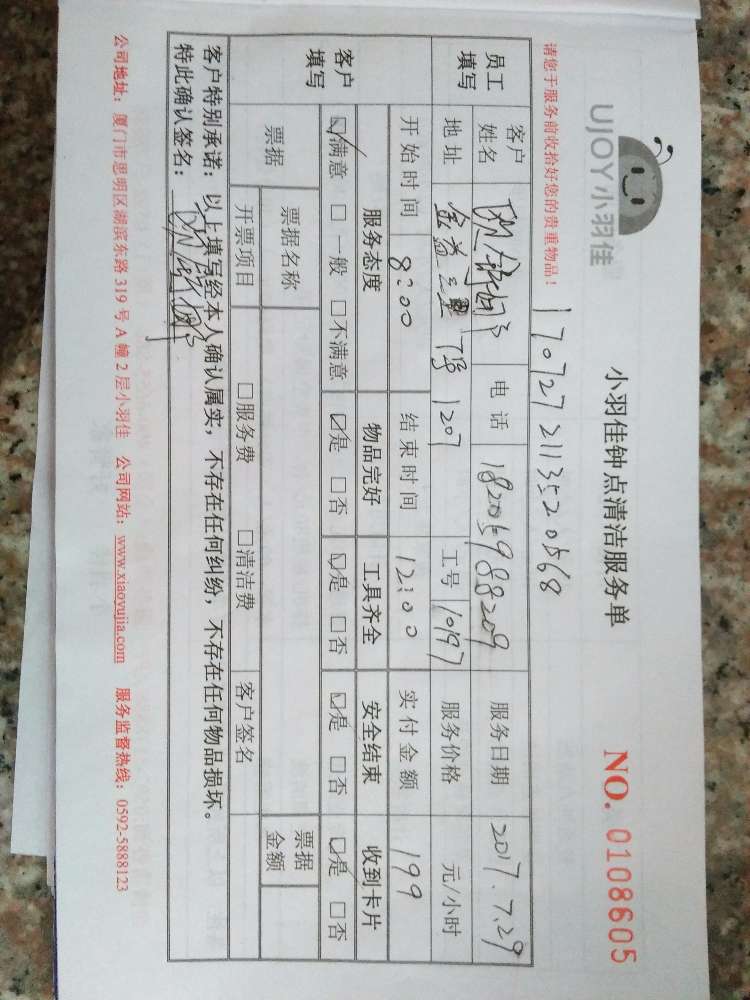 UJOY小羽佳
小羽佳钟点清洁服务单
NO. 0108605
请您于服务前收拾好您的贵重物品！
1707272113520568
员工填写
客户姓名
电话 18205988209
服务日期 2017.7.29
地址 金益三里 7号 1207
工号 10197
服务价格 元/小时
开始时间 8:00
结束时间 12:00
实付金额 199
客户填写
服务态度 物品完好 工具齐全 安全结束 收到卡片
☑满意 □一般 □不满意 ☑是 □否 ☑是 □否 ☑是 □否 ☑是 □否
票据
票据名称
票据金额
开票项目 □服务费 □清洁费 客户签名
客户特别承诺：以上填写经本人确认属实，不存在任何纠纷，不存在任何物品损坏。
特此确认签名：
公司地址：厦门市思明区湖滨东路319号A幢2层小羽佳 公司网站：www.xiaoyujia.com 服务监督热线：0592-5888123